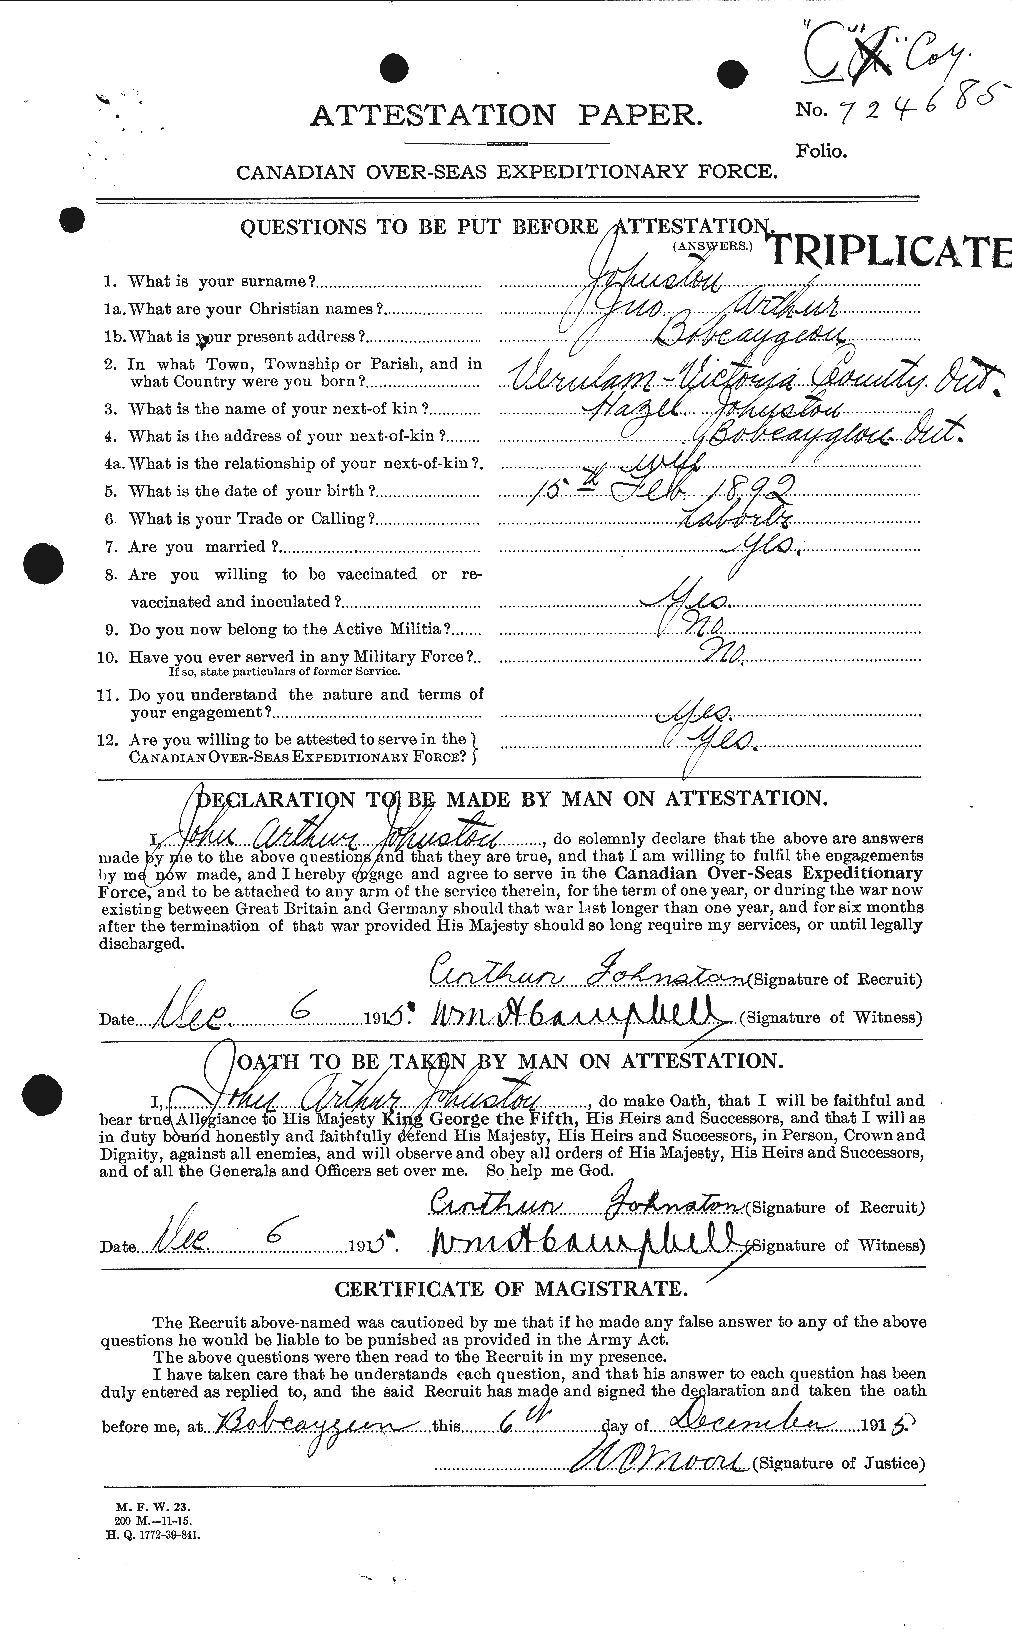 "C" "A" Coy.
ATTESTATION PAPER.
No. 724685
Folio.
CANADIAN OVER-SEAS EXPEDITIONARY FORCE.
QUESTIONS TO BE PUT BEFORE ATTESTATION.
(ANSWERS.)
TRIPLICATE
1. What is your surname? Johnston
1a. What are your Christian names? Jno. Arthur
1b. What is your present address? Bobcaygeon
2. In what Town, Township or Parish, and in
what Country were you born? Verulam - Victoria County. Ont.
3. What is the name of your next-of kin? Hazel Johnston
4. What is the address of your next-of-kin? Bobcaygeon Ont.
4a. What is the relationship of your next-of-kin? wife
5. What is the date of your birth? 15th Feb 1892
6. What is your Trade or Calling? Laborer
7. Are you married? Yes.
8. Are you willing to be vaccinated or re-
vaccinated and inoculated? Yes.
9. Do you now belong to the Active Militia? No
10. Have you ever served in any Military Force? No.
If so, state particulars of former Service.
11. Do you understand the nature and terms of
your engagement? Yes.
12. Are you willing to be attested to serve in the
CANADIAN OVER-SEAS EXPEDITIONARY FORCE? Yes.
DECLARATION TO BE MADE BY MAN ON ATTESTATION.
I, John Arthur Johnston, do solemnly declare that the above are answers
made by me to the above questions and that they are true, and that I am willing to fulfil the engagements
by me now made, and I hereby engage and agree to serve in the Canadian Over-Seas Expeditionary
Force, and to be attached to any arm of the service therein, for the term of one year, or during the war now
existing between Great Britain and Germany should that war last longer than one year, and for six months
after the termination of that war provided His Majesty should so long require my services, or until legally
discharged.
Arthur Johnston (Signature of Recruit)
Date Dec. 6 1915. Wm A Campbell (Signature of Witness)
OATH TO BE TAKEN BY MAN ON ATTESTATION.
I, John Arthur Johnston, do make Oath, that I will be faithful and
bear true Allegiance to His Majesty King George the Fifth, His Heirs and Successors, and that I will as
in duty bound honestly and faithfully defend His Majesty, His Heirs and Successors, in Person, Crown and
Dignity, against all enemies, and will observe and obey all orders of His Majesty, His Heirs and Successors,
and of all the Generals and Officers set over me. So help me God.
Arthur Johnston (Signature of Recruit)
Date Dec. 6 1915. Wm A Campbell (Signature of Witness)
CERTIFICATE OF MAGISTRATE.
The Recruit above-named was cautioned by me that if he made any false answer to any of the above
questions he would be liable to be punished as provided in the Army Act.
The above questions were then read to the Recruit in my presence.
I have taken care that he understands each question, and that his answer to each question has been
duly entered as replied to, and the said Recruit has made and signed the declaration and taken the oath
before me, at Bobcaygeon this 6th day of December 1915
Moore (Signature of Justice)
M. F. W. 23.
200 M.-11-15.
H. Q. 1772-39-841.